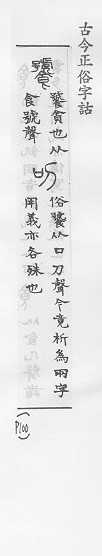 古今正俗字詁
饕
饕貪也从
食號聲
叨
俗饕从口刀聲今竟析為兩字
用義亦各殊也
(P100)